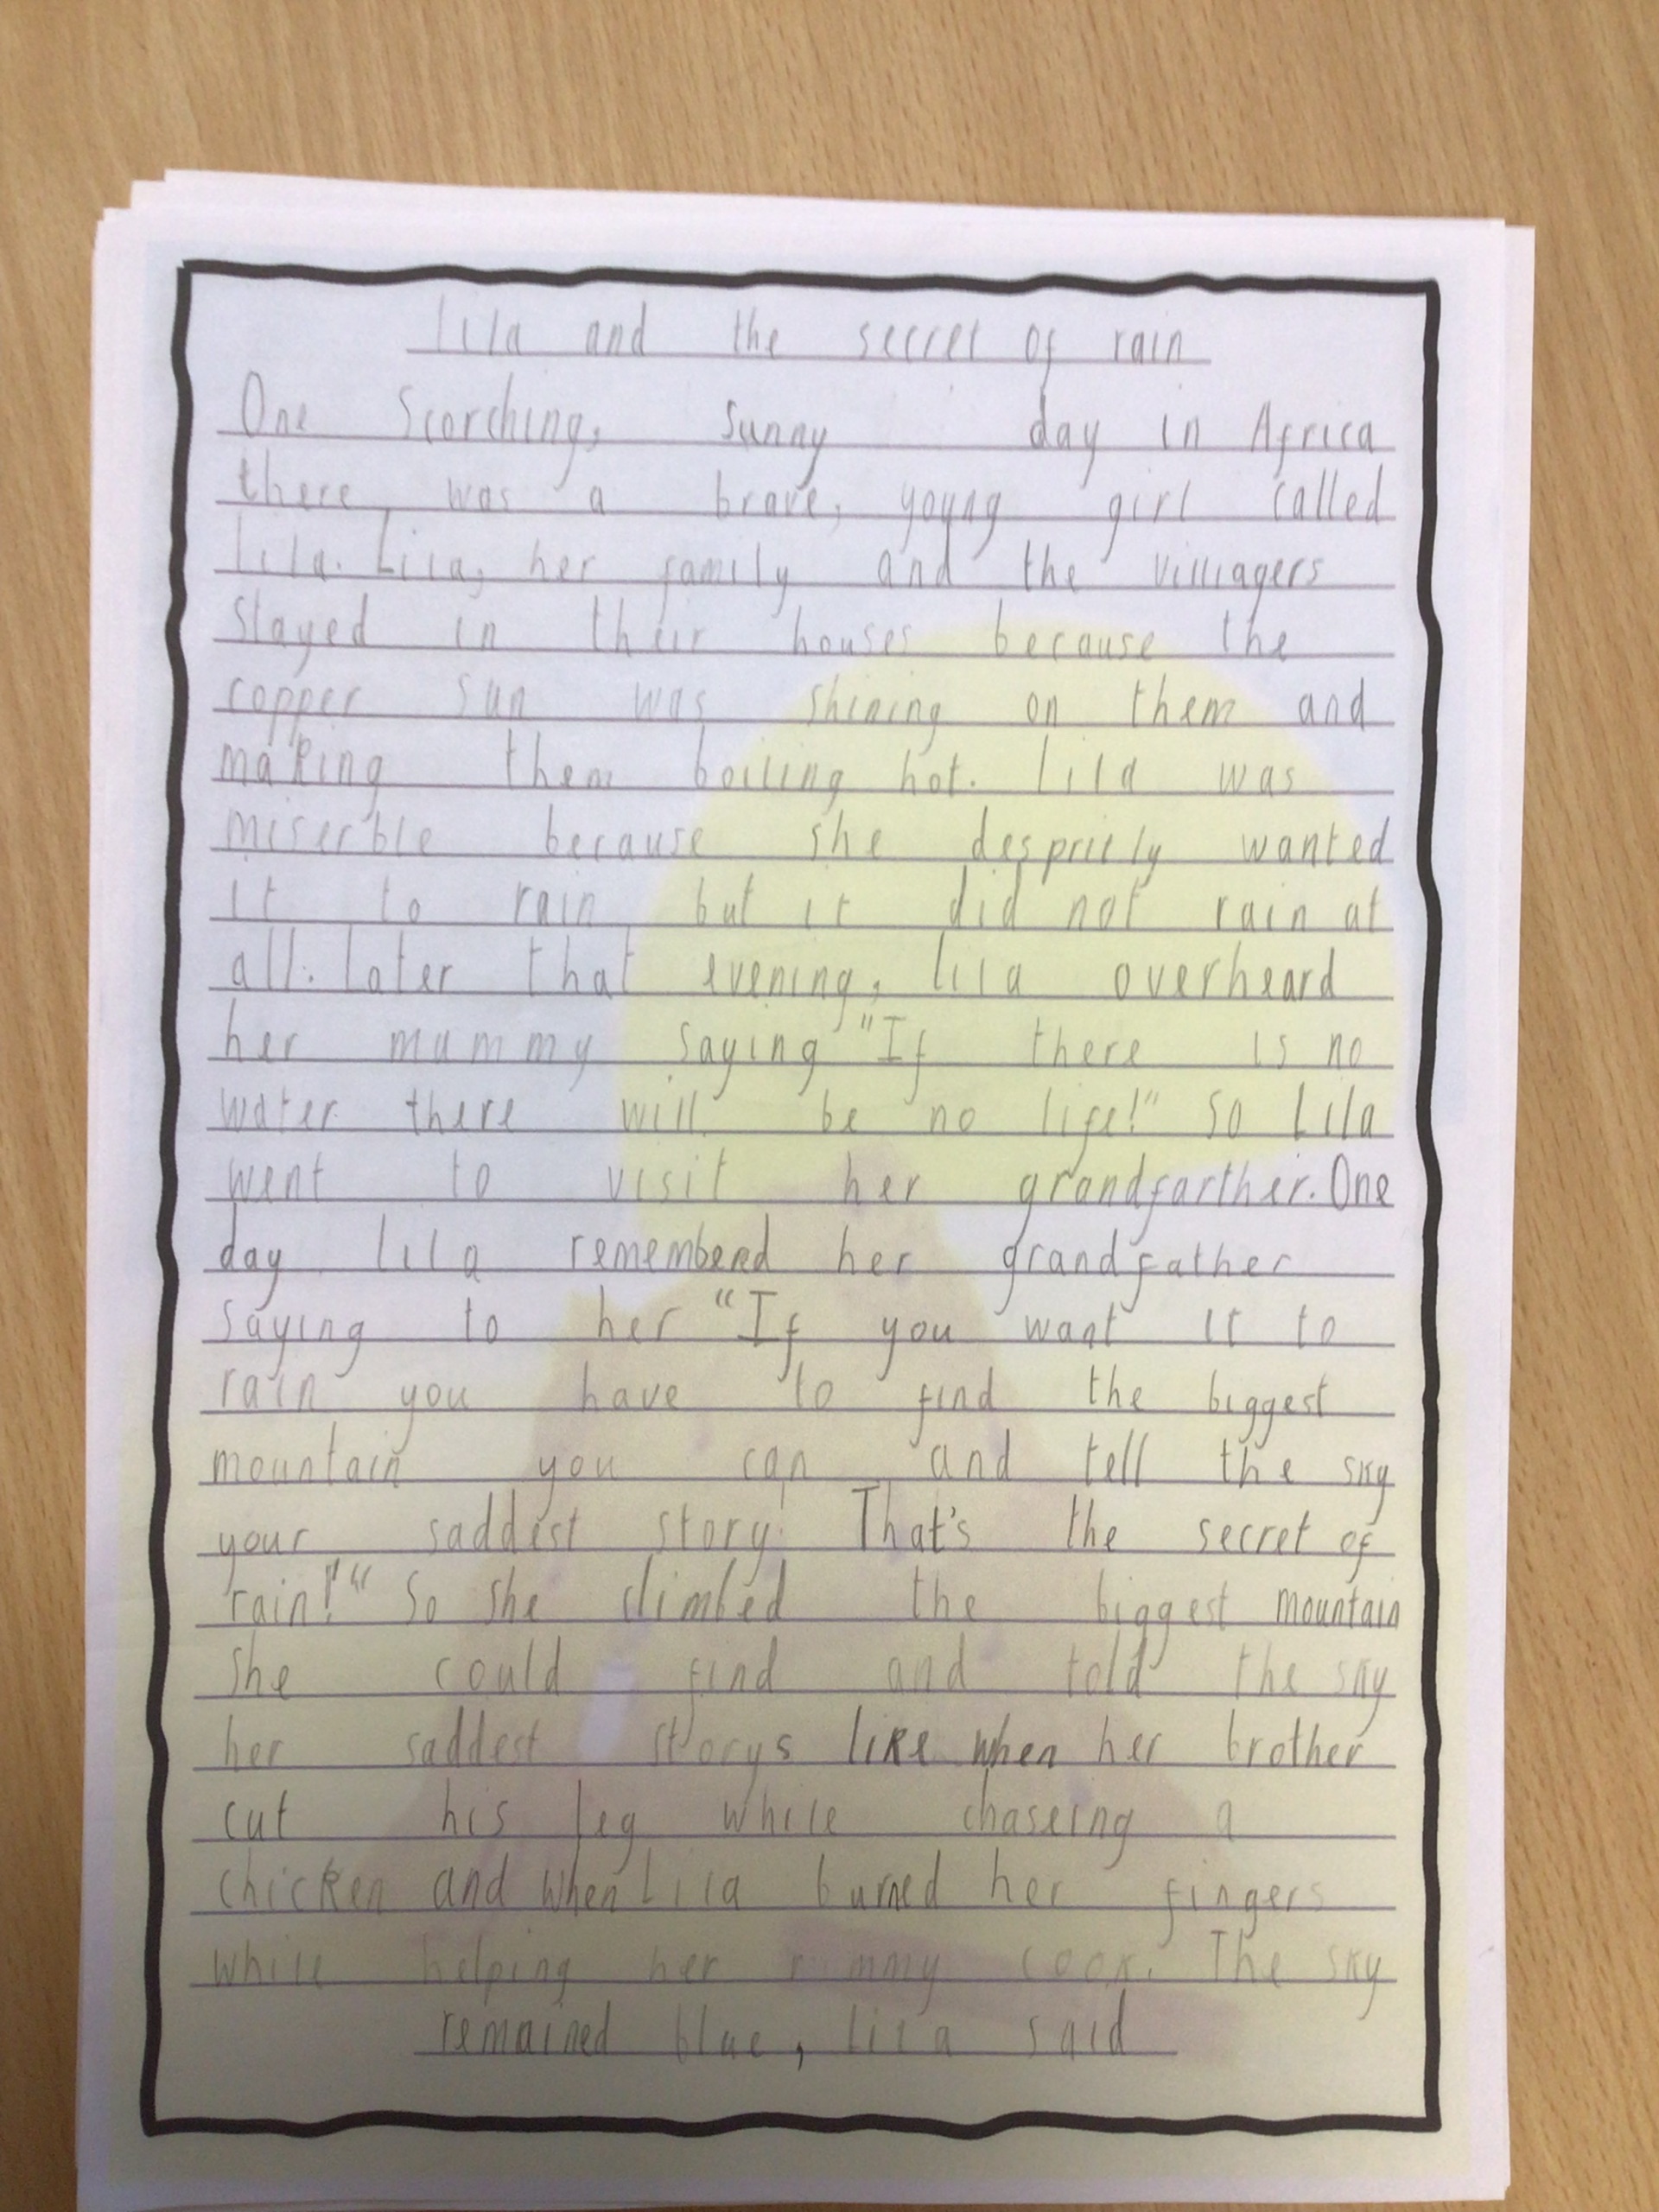 lila and the secret of rain
One Scorching, Sunny day in Africa
there was a brave, young girl called
lila. Lila, her family and the villiagers
stayed in their houses because the
copper sun was shining on them and
making them boiling hot. lila was
miserble because she despritly wanted
it to rain but it did not rain at
all. later that evening, lila overheard
her mummy saying "If there is no
water there will be no life!" so Lila
went to visit her grandfarther. One
day lila rememberd her grandfather
saying to her "If you want it to
rain you have to find the biggest
mountain you can and tell the sky
your saddest story! That's the secret of
rain!" So she climbed the biggest mountain
she could find and told the sky
her saddest storys like when her brother
cut his leg while chaseing a
chicken and when Lila burned her fingers
while helping her mummy cook. The sky
remained blue, lila said